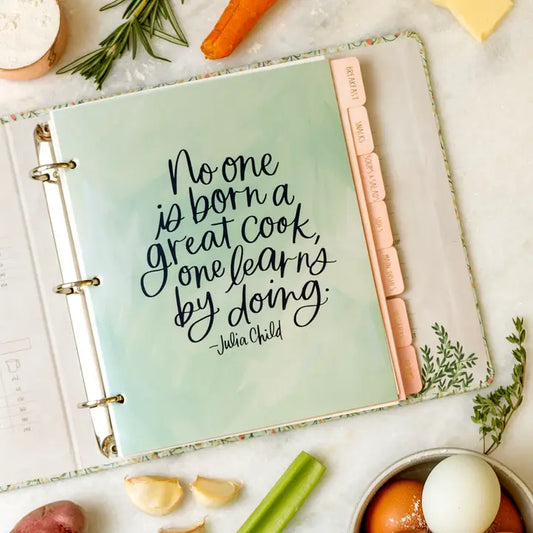 No one
is born a
great cook,
one learns
by doing.
-Julia Child
BREAKFAST
SNACKS
SOUPS & SALADS
SIDES
MAIN DISHES